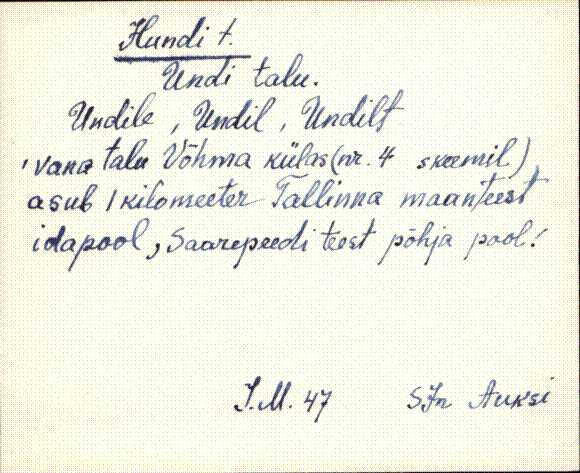 Hundi t.
Undi talu.
Undile, Undil, Undilt
'vana talu Võhma külas (nr. 4 skeemil)
asub 1 kilomeeter Tallinna maanteest
idapool, Saarepeedi teest põhja pool!
J.M. 47 SJn Auksi